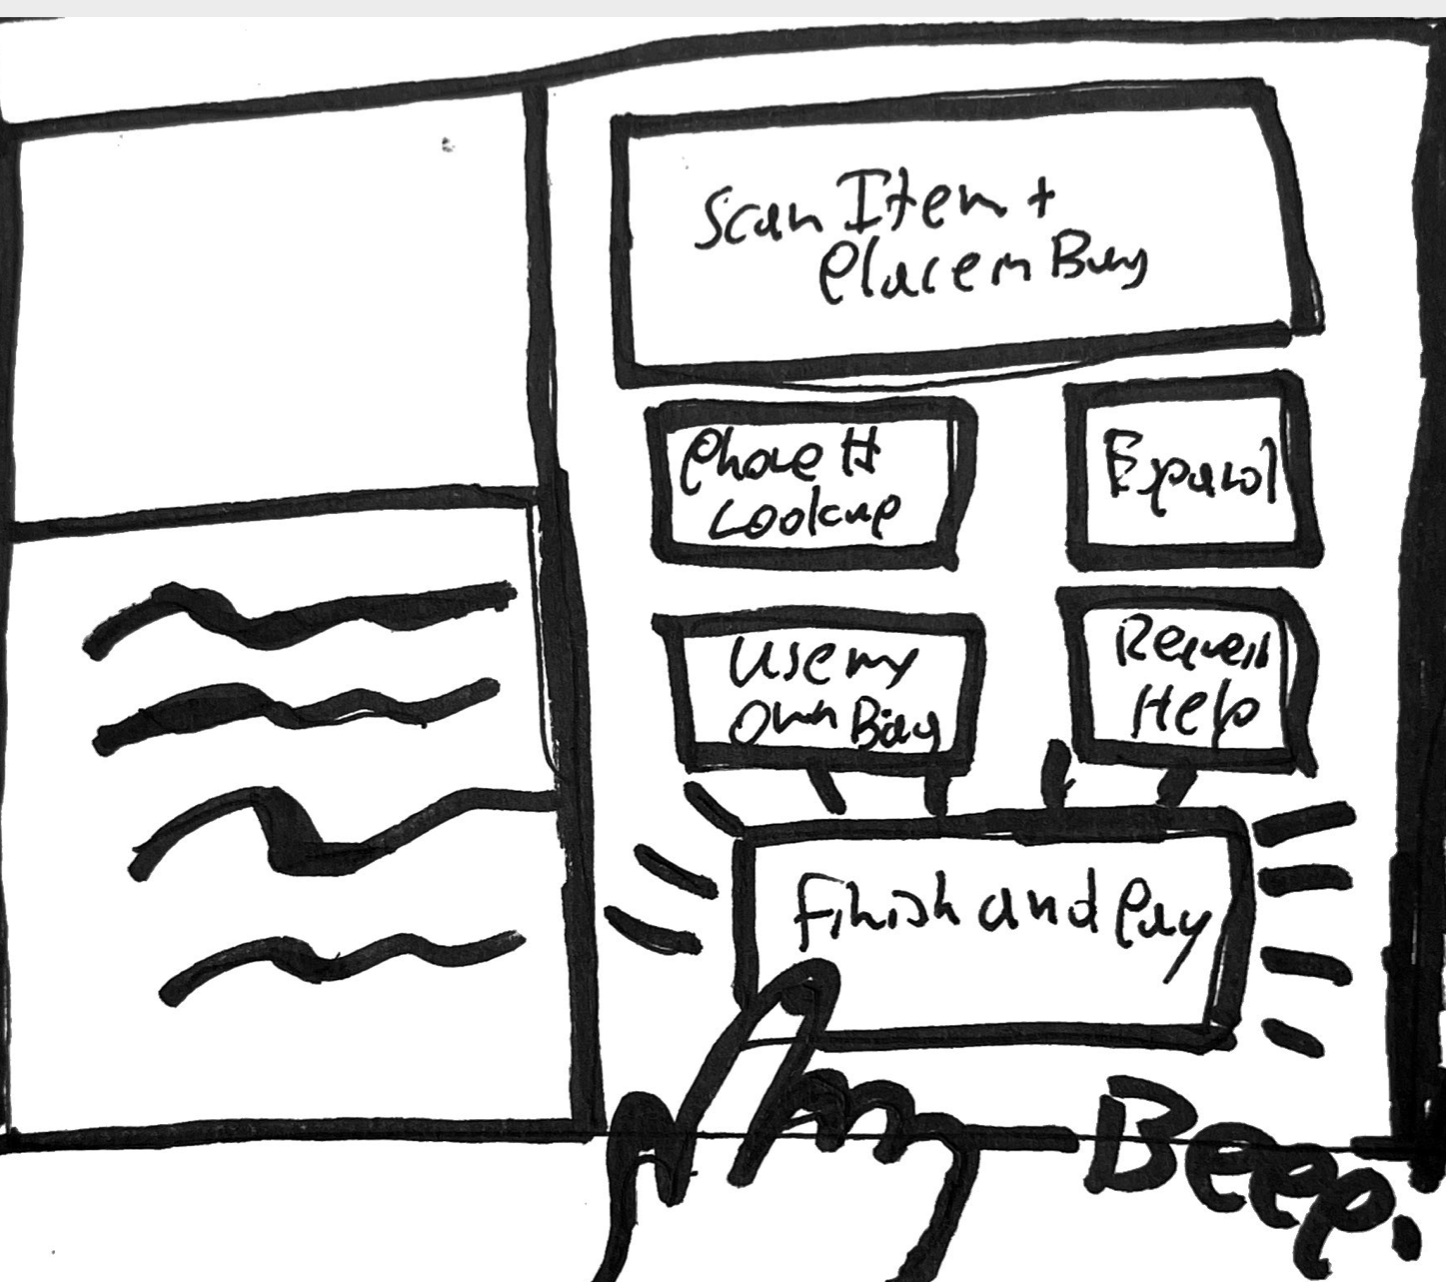 Scan Item +
Place in Bag
Phone #
Lookup
Espanol
Use my
Own Bag
Request
Help
Finish and Pay
Beep.